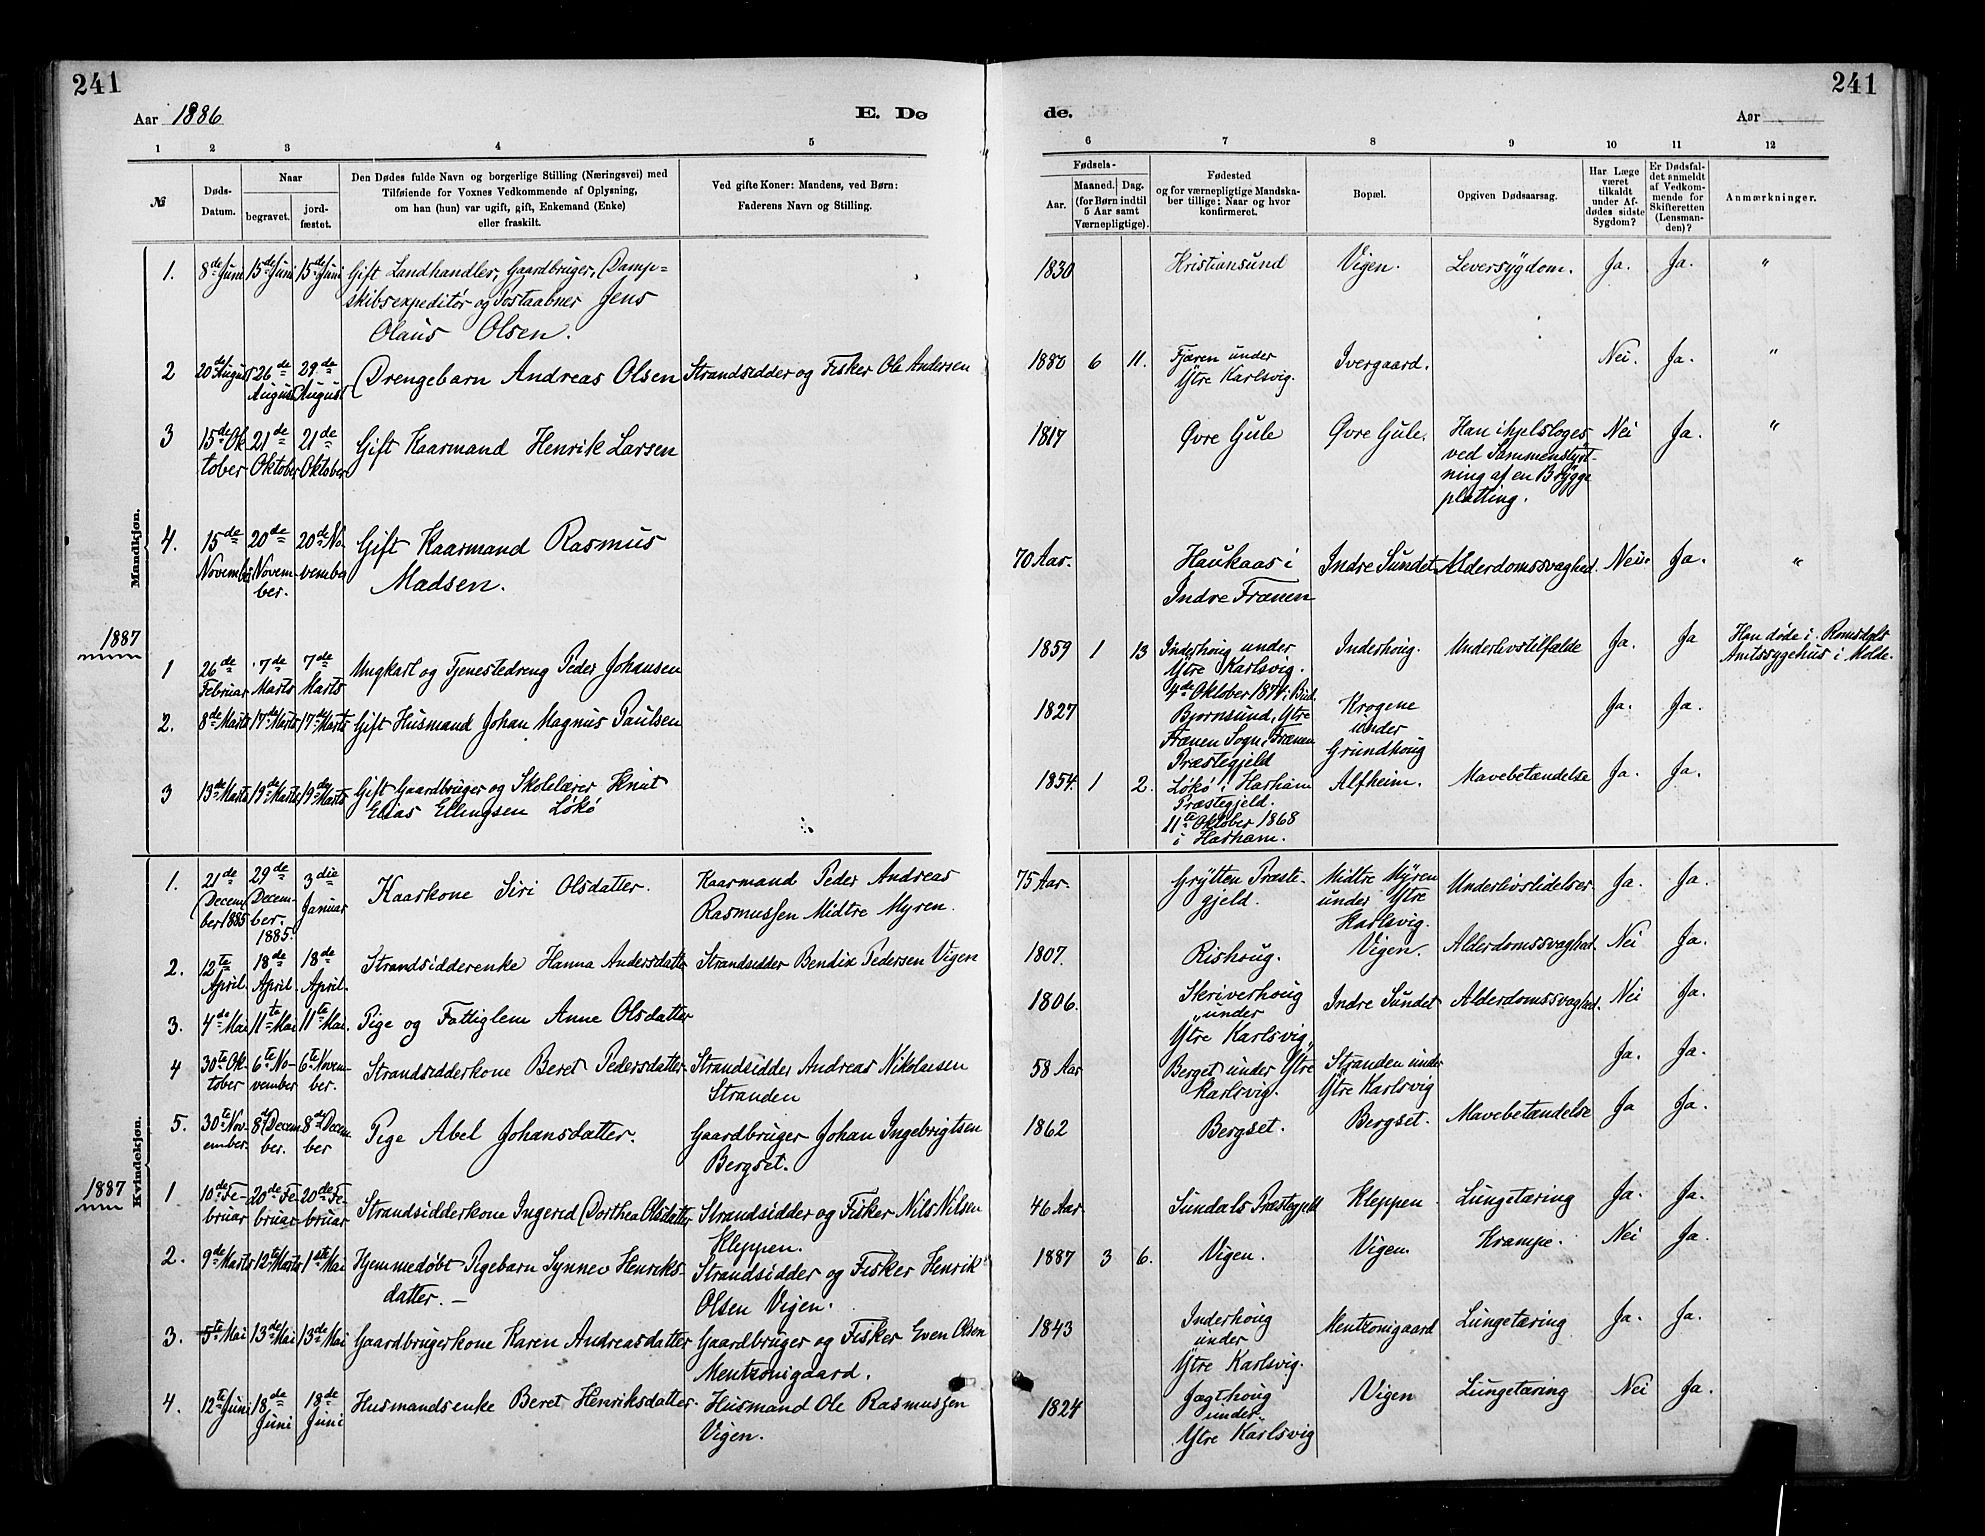 241
241
Aar 1886
E. Dø
de.
Aar
1 2 3 4 5
6 7 8 9 10 11 12
№
Døds-
Datum.
Naar
begravet.
jord-
fæstet.
Den Dødes fulde Navn og borgerlige Stilling (Næringsvei) med
Tilføiende for Voxnes Vedkommende af Oplysning,
om han (hun) var ugift, gift, Enkemand (Enke)
eller fraskilt.
Ved gifte Koner: Mandens, ved Børn:
Faderens Navn og Stilling.
Fødsels-
Aar.
Maaned. Dag.
(for Børn indtil
5 Aar samt
Værnepligtige).
Fødested
og for værnepligtige Mandska-
ber tillige: Naar og hvor
konfirmeret.
Bopæl.
Opgiven Dødsaarsag.
Har Læge
været
tilkaldt
under Af-
dødes sidste
Sygdom?
Er Dødsfal-
det anmeldt
af Vedkom-
mende for
Skifteretten
(Lensman-
den)?
Anmærkninger.
Mandkjøn.
1. 8de Juni 15de Juni 15de Juni Gift Landhandler, Gaardbruger, Damp-
skibsexpeditør og Postaabner Jens
Olaus Olsen.
1830 Kristiansund Vigen. Leversygdom. Ja. Ja. "
2 20de August 26de August 29de August Drengebarn Andreas Olsen Strandsidder og Fisker Ole Andersen
1880 6 11. Fjæren under
Ytre Karlsvig. Ivergaard. Nei. Ja. "
3 15de Oktober 21de Oktober 21de Oktober Gift Kaarmand Henrik Larsen
1817 Øvre Gule Øvre Gule. Han ihjelsloges
ved Sammenstyrt-
ning af en Brygge
platting. Nei Ja. "
4. 15de November 20de November. 20de November Gift Kaarmand Rasmus
Madsen.
70 Aar. Haukaas i
Indre Frænen Indre Sundet Alderdomssvaghed. Nei. Ja. "
1887
1 26de Februar 7de Marts 7de Marts Ungkarl og Tjenestedreng Peder Johansen
1859 1 13 Inderhoug under
Ytre Karlsvig.
4de Oktober 1874 i Bud. Inderhoug. Underlivstilfælde Ja. Ja Han døde i Romsdals
Amtssygehus i Molde.
2. 8de Marts 17de Marts 17de Marts Gift Husmand Johan Magnus Paulsen
1827 Bjørnsund, Ytre
Frænen Sogn i Frænen
Præstegjeld Krogene
under
Grundhoug Ja. Ja.
3 13de Marts 19de Marts 19de Marts Gift Gaardbruger og Skolelærer Knut
Elias Ellingsen Løkø
1854. 1 2. Løkø i Harham
Præstegjeld.
11te Oktober 1868
i Harham. Alfheim. Mavebetændelse Ja. Ja.
Kvindekjøn.
1. 21de December 1885 29de December. 1885. 3die Januar Kaarkone Siri Olsdatter. Kaarmand Peder Andreas
Rasmussen Midtre Myren.
75 Aar. Grytten Præste-
gjeld. Midtre Myren
under Ytre
Karlsvig. Underlivslidelser Ja. Ja.
2. 12te April. 18de April. 18de April. Strandsidderenke Hanna Andersdatter Strandsidder Bendix Pedersen Vigen
1807. Rishoug. Vigen. Alderdomssvaghed. Nei Ja.
3. 4de Mai 11te Mai 11te Mai. Pige og Fattiglem Anne Olsdatter
1806. Skriverhoug
under
Ytre Karlsvig. Indre Sundet Alderdomssvaghed. Nei Ja.
4 30te Oktober 6te November 6te November. Strandsidderkone Beret Pedersdatter Strandsidder Andreas Nikolaisen
Stranden
58 Aar Berget under Ytre
Karlsvig. Stranden under
Ytre Karlsvig Ja. Ja.
5. 30te November. 8de December. 8de December Pige Abel Johansdatter. Gaardbruger Johan Ingebrigtsen
Bergset.
1862 Bergset. Bergset. Mavebetændelse Ja Ja.
1887
1 10de Februar 20de Februar 20de Februar Strandsidderkone Ingerid Dorthea Olsdatter Strandsidder og Fisker Nils Nilsen
Kleppen.
46 Aar Sundals Præstegjeld Kleppen. Lungetæring Ja. Ja.
2. 9de Marts 12te Marts 1ste Mai Hjemmedøbt Pigebarn Synnev Henriks-
datter. — Strandsidder og Fisker Henrik
Olsen Vigen.
1887 3 6. Vigen. Vigen. Krampe. Nei Ja.
3. 5te Mai 13de Mai 13de Mai Gaardbrugerkone Karen Andreasdatter Gaardbruger og Fisker Even Olsen
Mentzonigaard.
1843 Inderhoug
under
Ytre Karlsvig. Mentzonigaard Lungetæring Ja. Ja.
4. 12te Juni 18de Juni 18de Juni Husmandsenke Beret Henriksdatter. Husmand Ole Rasmussen
Vigen.
1824 Jagthoug
under
Ytre Karlsvig Vigen Lungetæring Nei Ja.